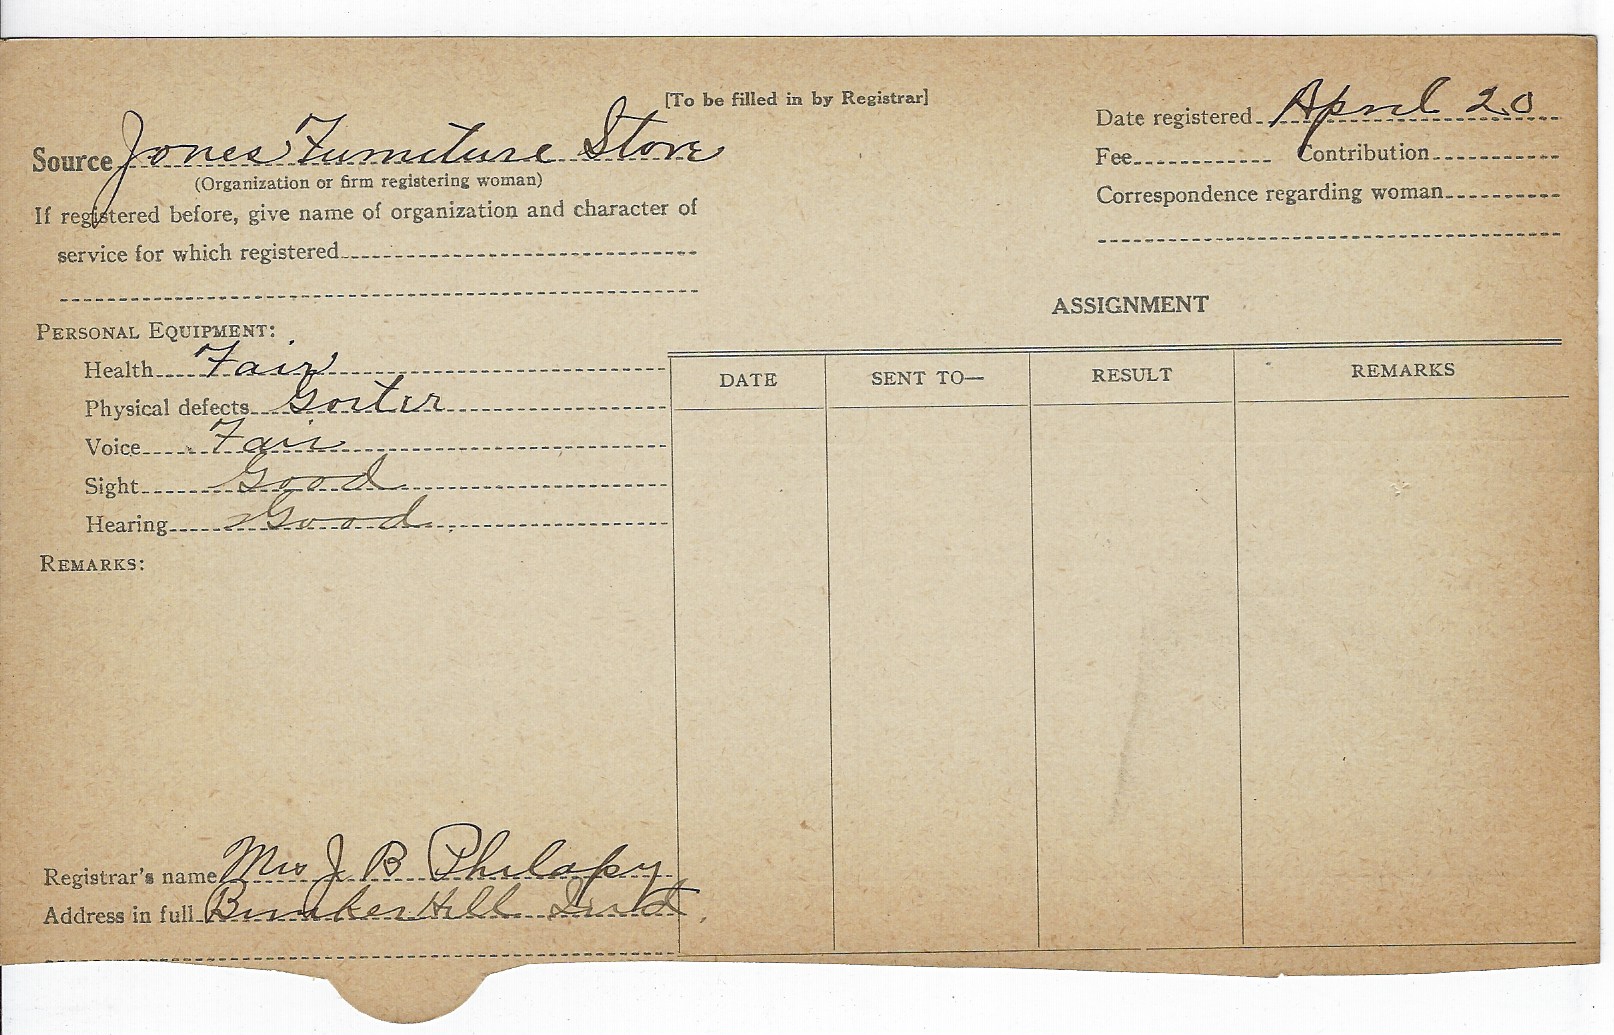 [To be filled in by Registrar]
Source Jones Furniture Store
(Organization or firm registering woman)
If registered before, give name of organization and character of
service for which registered
Date registered April 20
Fee Contribution
Correspondence regarding woman
PERSONAL EQUIPMENT:
Health Fair
Physical defects Goiter
Voice Fair
Sight Good
Hearing Good
REMARKS:
ASSIGNMENT
DATE SENT TO— RESULT REMARKS
Registrar's name Mrs J B Philapy
Address in full Bunker Hill